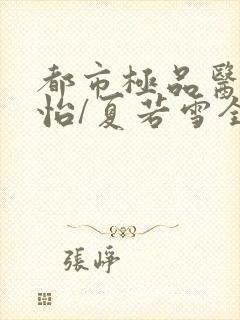 都市極品醫
怡/夏若雪全
張崢